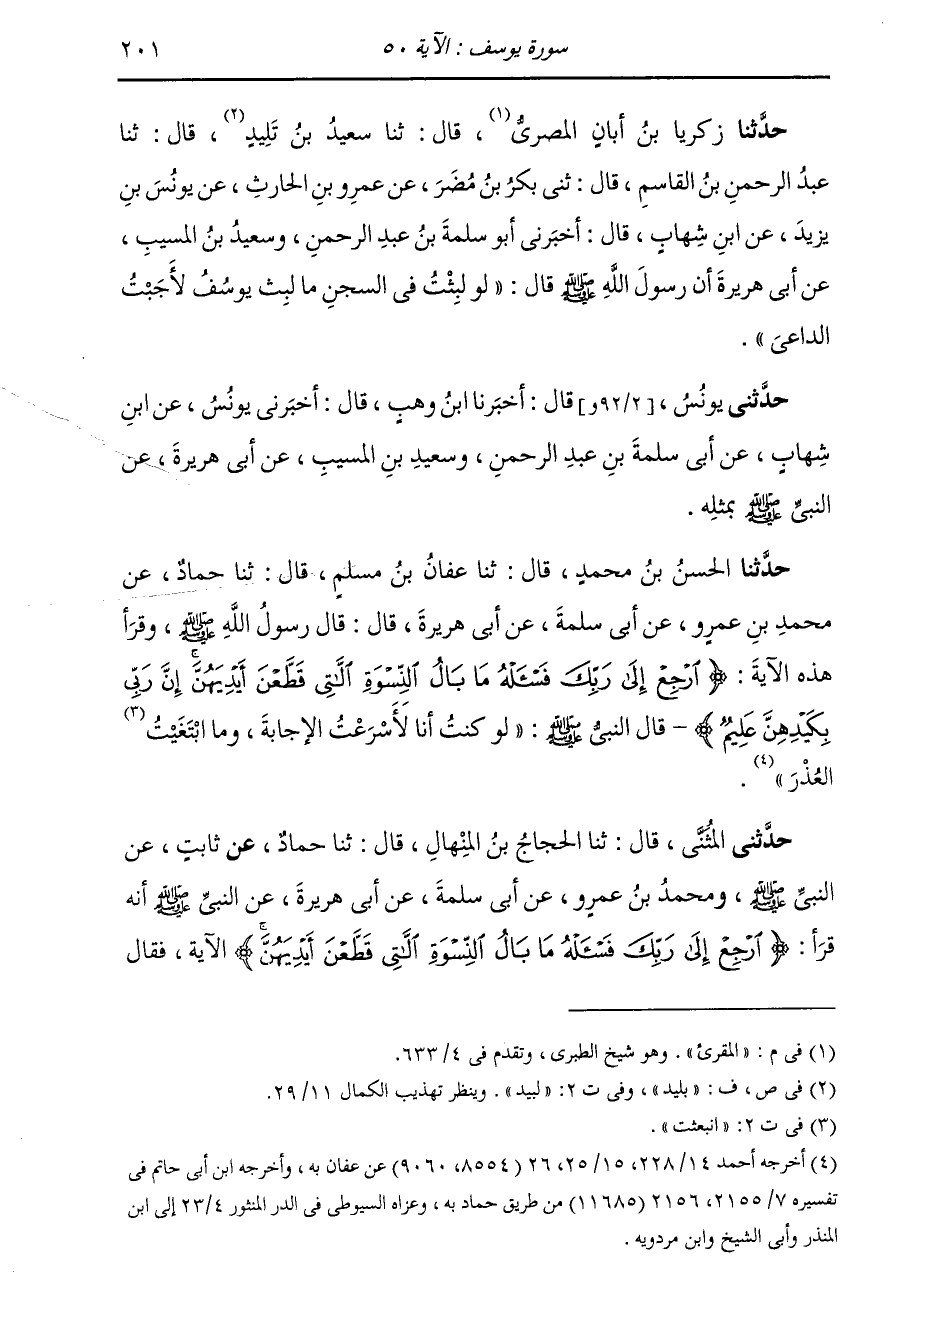 سورة يوسف : الآية ٥٠ ٢٠١
حدَّثنا زكريا بنُ أبانٍ المصرىُّ(١) ، قال : ثنا سعيدُ بنُ تَلِيدٍ(٢) ، قال : ثنا
عبدُ الرحمنِ بنُ القاسمِ ، قال : ثنى بكرُ بنُ مُضَرَ ، عن عمرِو بنِ الحارثِ ، عن يونُسَ بنِ
يزيدَ ، عن ابنِ شِهابٍ ، قال : أخبَرنى أبو سلمةَ بنُ عبدِ الرحمنِ ، وسعيدُ بنُ المسيبِ ،
عن أبى هريرةَ أن رسولَ اللَّهِ ﷺ قال : « لو لبِثْتُ فى السجنِ ما لبِث يوسُفُ لأَجَبْتُ
الداعىَ » .
حدَّثنى يونُسُ ، [٩٢/٢و] قال : أخبَرنا ابنُ وهبٍ ، قال : أخبَرنى يونُسُ ، عن ابنِ
شِهابٍ ، عن أبى سلمةَ بنِ عبدِ الرحمنِ ، وسعيدِ بنِ المسيبِ ، عن أبى هريرةَ ، عن
النبىِّ ﷺ بمثلِه .
حدَّثنا الحسنُ بنُ محمدٍ ، قال : ثنا عفانُ بنُ مسلمٍ ، قال : ثنا حمادٌ ، عن
محمدِ بنِ عمرٍو ، عن أبى سلمةَ ، عن أبى هريرةَ ، قال : قال رسولُ اللَّهِ ﷺ ، وقرَأ
هذه الآيةَ : ﴿ ٱرْجِعْ إِلَىٰ رَبِّكَ فَسْـَٔلْهُ مَا بَالُ ٱلنِّسْوَةِ ٱلَّـٰتِى قَطَّعْنَ أَيْدِيَهُنَّۚ إِنَّ رَبِّى
بِكَيْدِهِنَّ عَلِيمٌ ﴾ - قال النبىُّ ﷺ : « لو كنتُ أنا لَأَسْرَعْتُ الإجابةَ ، وما ابْتَغَيْتُ(٣)
العُذْرَ »(٤) .
حدَّثنى المُثَنَّى ، قال : ثنا الحجاجُ بنُ المِنْهالِ ، قال : ثنا حمادٌ ، عن ثابتٍ ، عن
النبىِّ ﷺ ، ومحمدُ بنُ عمرٍو ، عن أبى سلمةَ ، عن أبى هريرةَ ، عن النبىِّ ﷺ أنه
قرَأ : ﴿ ٱرْجِعْ إِلَىٰ رَبِّكَ فَسْـَٔلْهُ مَا بَالُ ٱلنِّسْوَةِ ٱلَّـٰتِى قَطَّعْنَ أَيْدِيَهُنَّۚ ﴾ الآية ، فقال
(١) فى م : «المقرئ» . وهو شيخ الطبرى ، وتقدم فى ٤/ ٦٣٣.
(٢) فى ص ، ف : «بليد» ، وفى ت ٢: «لبيد» . وينظر تهذيب الكمال ١١/ ٢٩.
(٣) فى ت ٢: «انبعثت» .
(٤) أخرجه أحمد ١٤/ ٢٢٨، ١٥/ ٢٥، ٢٦ (٨٥٥٤، ٩٠٦٠) عن عفان به ، وأخرجه ابن أبى حاتم فى
تفسيره ٧/ ٢١٥٥، ٢١٥٦ (١١٦٨٥) من طريق حماد به ، وعزاه السيوطى فى الدر المنثور ٢٣/٤ إلى ابن
المنذر وأبى الشيخ وابن مردويه .